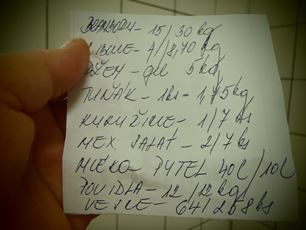 BRAMBORY - 15/30 kg
LIBOVÉ - 4/8,40 kg
DŽEM - gel 5 kg
TUŇÁK - 1ks - 1,75 kg
KUKUŘICE - 1/7 ks
MEX SALÁT - 2/7 ks
MLÉKO - PYTEL 40l/10l
POVIDLA - 12/12 kg
VEJCE - 64/288 ks